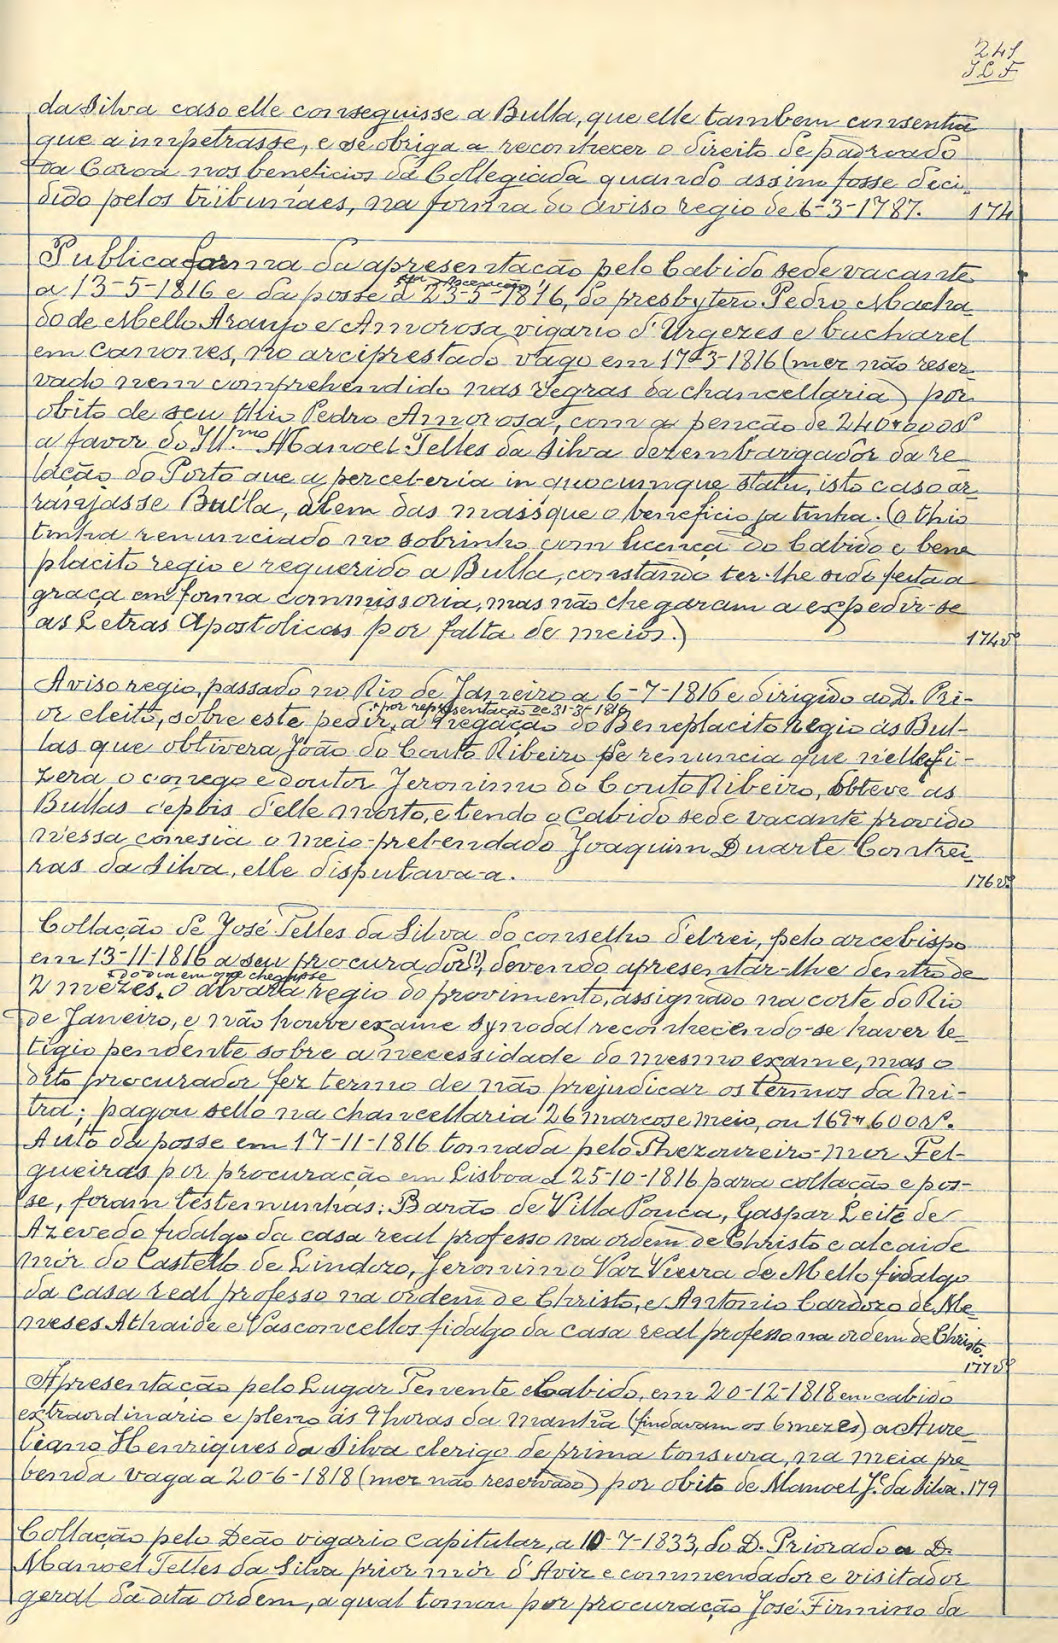 241
da Silva caso elle conseguisse a Bulla, que elle tambem consentia
que a impetrasse, e se obriga a reconhecer o direito de padroado
da Coroa nos beneficios da Collegiada quando assim fosse deci-
dido pelos tribunaes, na forma do aviso regio de 6-3-1787. 174
Publica forma da apresentação pelo Cabido sede vacante
a 13-5-1816 e da posse a 23-5-1816, do presbytero Pedro Macha-
do de Mello Araujo e Amorosa, vigario d'Urgezes e bacharel
em canones, no arciprestado vago em 17-3-1816 (mez não reser-
vado nem comprehendido nas regras da chancellaria) por
obito de seu thio Pedro Amorosa, com a penção de 240#000 rs
a favor do Ill.mo Manoel Telles da Silva dezembargador da re-
lação do Porto que a perceberia in quocumque statu, isto caso ar-
ranjasse Bulla, alem das mais que o beneficio ja tinha. (O thio
tinha renunciado no sobrinho com licença do Cabido e bene
placito regio e requerido a Bulla, constando ter-lhe sido feita a
graça em forma commissoria, mas não chegaram a expedir-se
as Letras Apostolicas por falta de meios.) 174vº
Aviso regio, passado no Rio de Janeiro a 6-7-1816 e dirigido ao D. Pri-
or eleito, sobre este pedir, por representação de 31-3-1816, a negação do Beneplacito Regio ás Bul-
las que obtivera João do Couto Ribeiro pe renuncia que n'elle fi-
zera o conego e doutor Jeronimo do Couto Ribeiro, obteve as
Bullas depois d'elle morto, e tendo o Cabido sede vacante provido
n'essa conesia o meio-prebendado Joaquim Duarte Contrei-
ras da Silva, elle disputava-a. 176vº
Collação de José Telles da Silva do conselho d'elrei, pelo arcebispo
em 13-11-1816 a seu procurador(?), devendo apresentar-lhe dentro de
2 mezes, do dia em que chegasse o alvará regio do provimento, assignado na corte do Rio
de Janeiro, e não houve exame synodal reconhecendo-se haver le-
tigio pendente sobre a necessidade do mesmo exame, mas o
dito procurador fez termo de não prejudicar os termos da Mi-
tra; pagou sello na chancellaria 26 marcos e meio, ou 169#600 rs.
Auto da posse em 17-11-1816 tomada pelo Thezoureiro-Mor Fel-
gueiras por procuração em Lisboa a 25-10-1816 para collação e pos-
se, foram testemunhas: Barão de Villa Pouca, Gaspar Leite de
Azevedo fidalgo da casa real professo na ordem de Christo e alcaide
mór do Castello de Lindozo, Jeronimo Vaz Vieira de Mello fidalgo
da casa real professo na ordem de Christo, e Antonio Cardozo de Me-
neses Athaide e Vasconcellos fidalgo da casa real professo na ordem de Christo.
177vº
Apresentação pelo Lugar Tenente e Cabido, em 20-12-1818 em cabido
extraordinario e pleno ás 9 horas da manhã (findavam os 6 mezes) a Aure-
liano Henriques da Silva clerigo de prima tonsura, na meia pre-
benda vaga a 20-6-1818 (mez não reservado) por obito de Manoel Jº. da Silva. 179
Collação pelo Deão vigario capitular, a 10-7-1833, do D. Priorado a D.
Manoel Telles da Silva prior mór d'Aviz e commendador e visitador
geral da dita ordem, a qual tomou por procuração José Firmino da